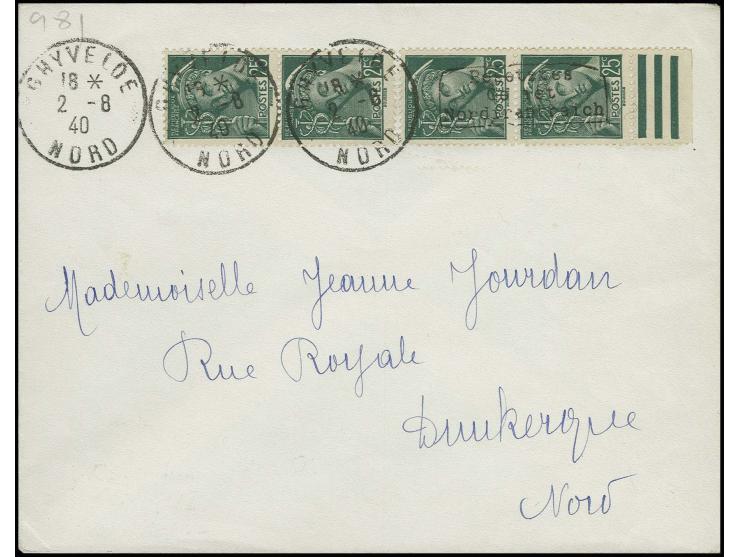 981
GHYVELDE
18 *
2 - 8
40
NORD
GHYVELDE
18 *
2 - 8
40
NORD
GHYVELDE
18 *
2 - 8
40
NORD
POSTES 25
POSTES 25
POSTES 25
POSTES 25
Besetztes
Gebiet
Nordfrankreich
Mademoiselle Jeanne Jourdan
Rue Royale
Dunkerque
Nord